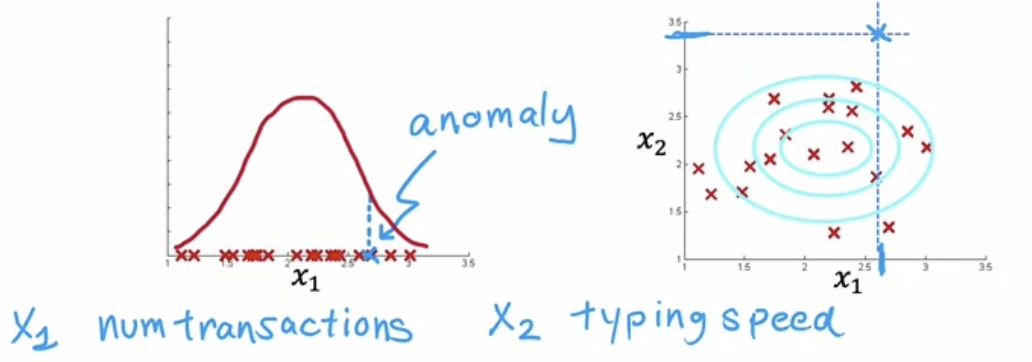 anomaly
x₁
1 1.5 2 2.5 3 3.5
x₂
3.5
3
2.5
2
1.5
1
1 1.5 2 2.5 3 3.5
x₁
X₁ num transactions
X₂ typing speed